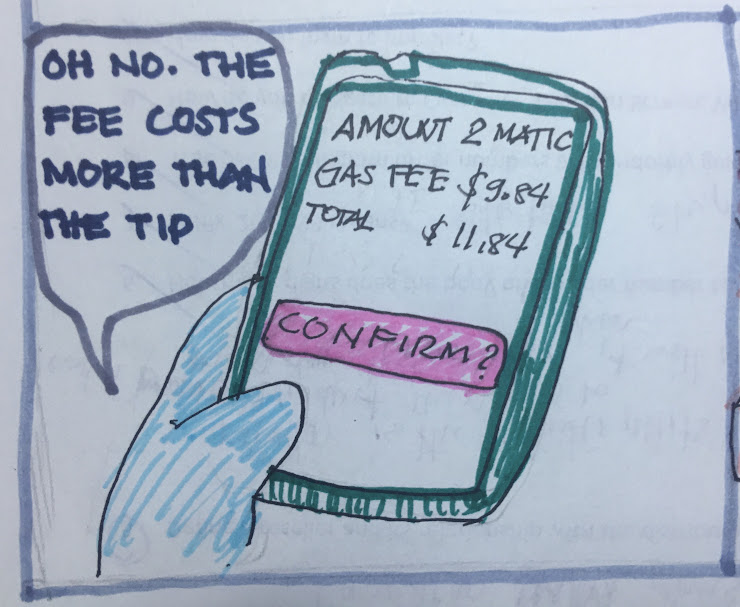 OH NO. THE
FEE COSTS
MORE THAN
THE TIP
AMOUNT 2 MATIC
GAS FEE $9.84
TOTAL $11.84
CONFIRM?